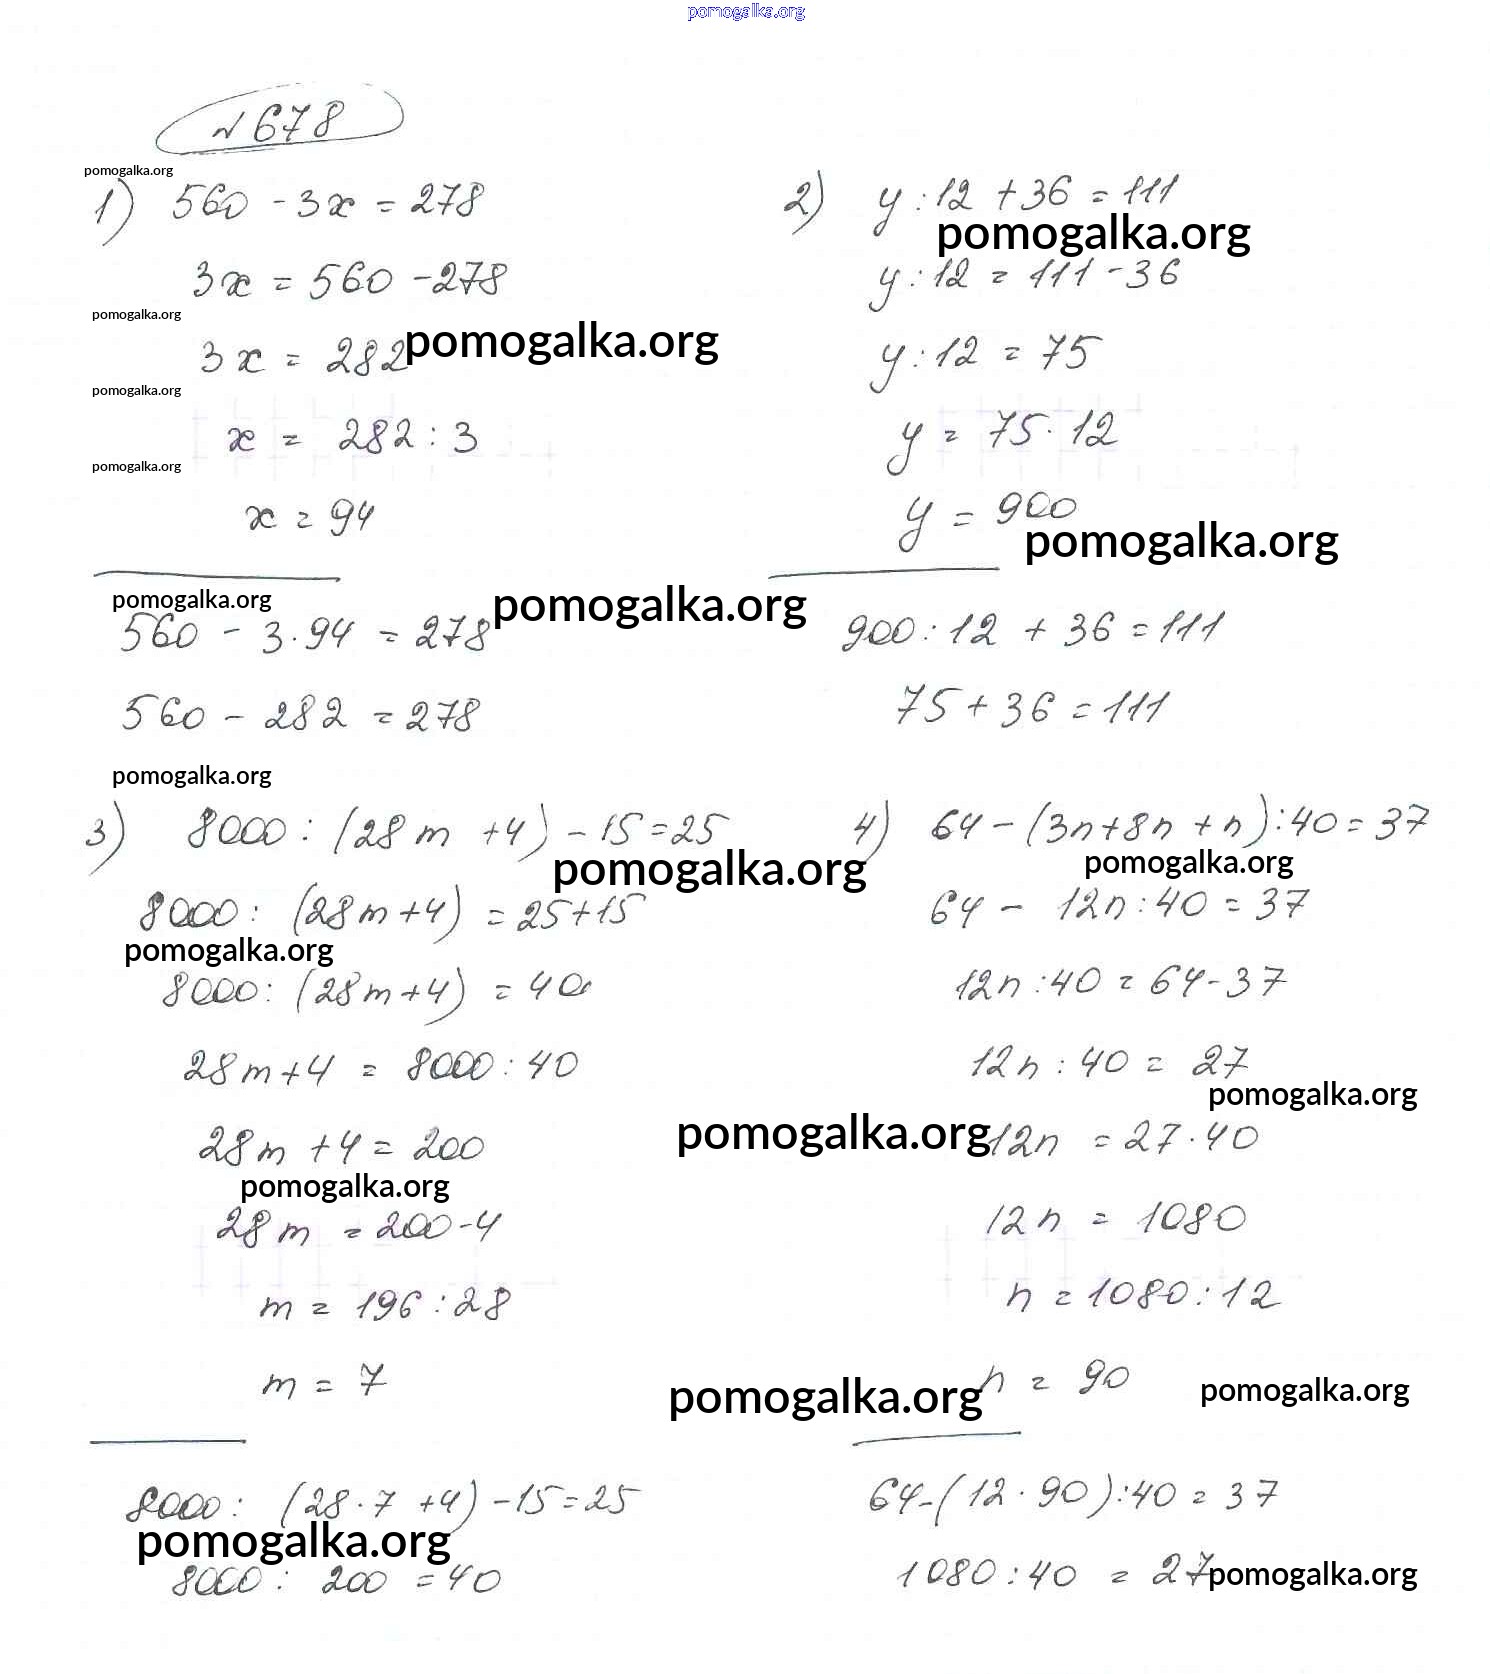 pomogalka.org
№ 678
pomogalka.org
1) 560 - 3x = 278
3x = 560 - 278
pomogalka.org
3x = 282
pomogalka.org
pomogalka.org
x = 282 : 3
pomogalka.org
x = 94
pomogalka.org
pomogalka.org
560 - 3 · 94 = 278
560 - 282 = 278
2) y : 12 + 36 = 111
pomogalka.org
y : 12 = 111 - 36
y : 12 = 75
y = 75 · 12
y = 900
pomogalka.org
900 : 12 + 36 = 111
75 + 36 = 111
pomogalka.org
3) 8000 : (28m + 4) - 15 = 25
pomogalka.org
8000 : (28m + 4) = 25 + 15
pomogalka.org
8000 : (28m + 4) = 40
28m + 4 = 8000 : 40
28m + 4 = 200
pomogalka.org
28m = 200 - 4
m = 196 : 28
m = 7
8000 : (28 · 7 + 4) - 15 = 25
pomogalka.org
8000 : 200 = 40
4) 64 - (3n + 8n + n) : 40 = 37
pomogalka.org
64 - 12n : 40 = 37
12n : 40 = 64 - 37
12n : 40 = 27
pomogalka.org
pomogalka.org
12n = 27 · 40
12n = 1080
n = 1080 : 12
pomogalka.org
n = 90
pomogalka.org
64 - (12 · 90) : 40 = 37
1080 : 40 = 27
pomogalka.org